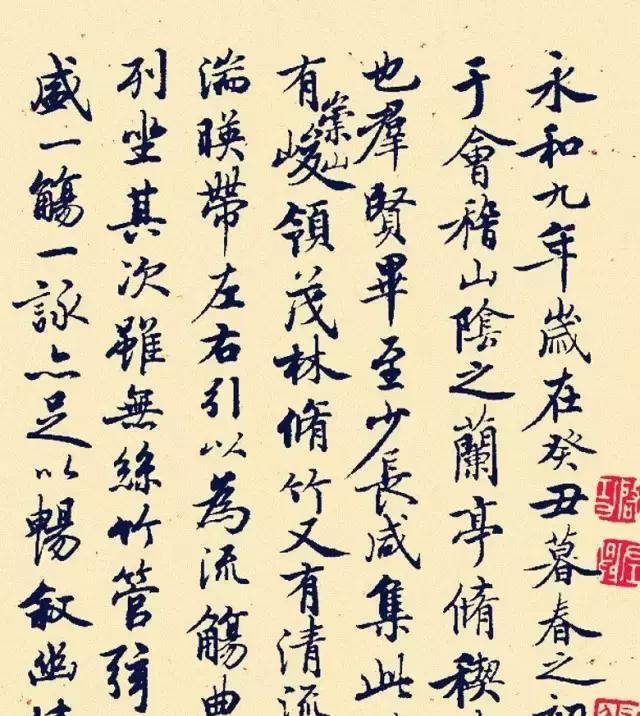 永和九年歲在癸丑暮春之初
于會稽山陰之蘭亭脩稧
也羣賢畢至少長咸集此
有崇山峻領茂林脩竹又有清流
湍暎帶左右引以為流觴曲
列坐其次雖無絲竹管弦
盛一觴一詠亦足以暢叙幽